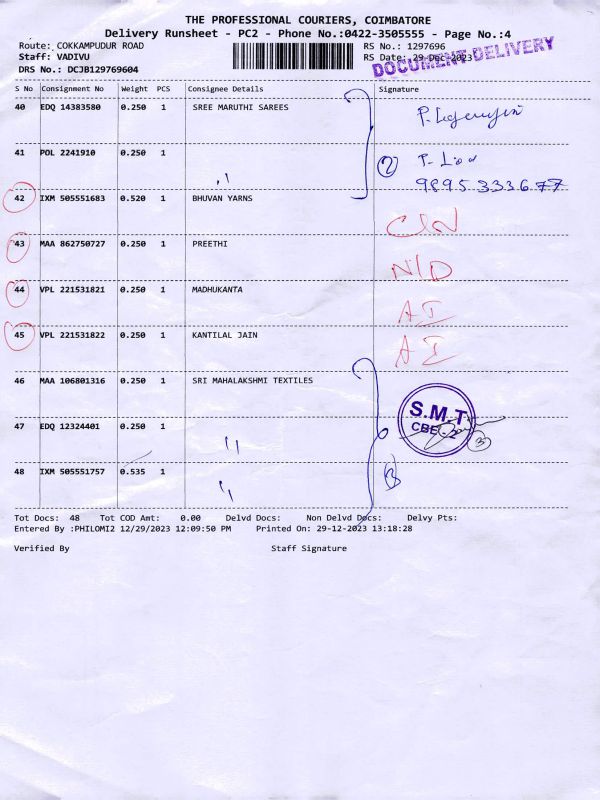 THE PROFESSIONAL COURIERS, COIMBATORE
Delivery Runsheet - PC2 - Phone No.:0422-3505555 - Page No.:4
Route: COKKAMPUDUR ROAD RS No.: 1297696
Staff: VADIVU RS Date: 29-Dec-2023
DOCUMENT DELIVERY
DRS No.: DCJB129769604
S No Consignment No Weight PCS Consignee Details Signature
40 EDQ 14383580 0.250 1 SREE MARUTHI SAREES
41 POL 2241910 0.250 1 ,, 2 P.
9895 333677
42 IXM 505551683 0.520 1 BHUVAN YARNS C/N
43 MAA 862750727 0.250 1 PREETHI N/D
44 VPL 221531821 0.250 1 MADHUKANTA A I
45 VPL 221531822 0.250 1 KANTILAL JAIN A I
46 MAA 106801316 0.250 1 SRI MAHALAKSHMI TEXTILES
S.M.T
CBE-2
47 EDQ 12324401 0.250 1 ,, 3
48 IXM 505551757 0.535 1 ,, 3
Tot Docs: 48 Tot COD Amt: 0.00 Delvd Docs: Non Delvd Docs: Delvy Pts:
Entered By :PHILOMI2 12/29/2023 12:09:50 PM Printed On: 29-12-2023 13:18:28
Verified By Staff Signature